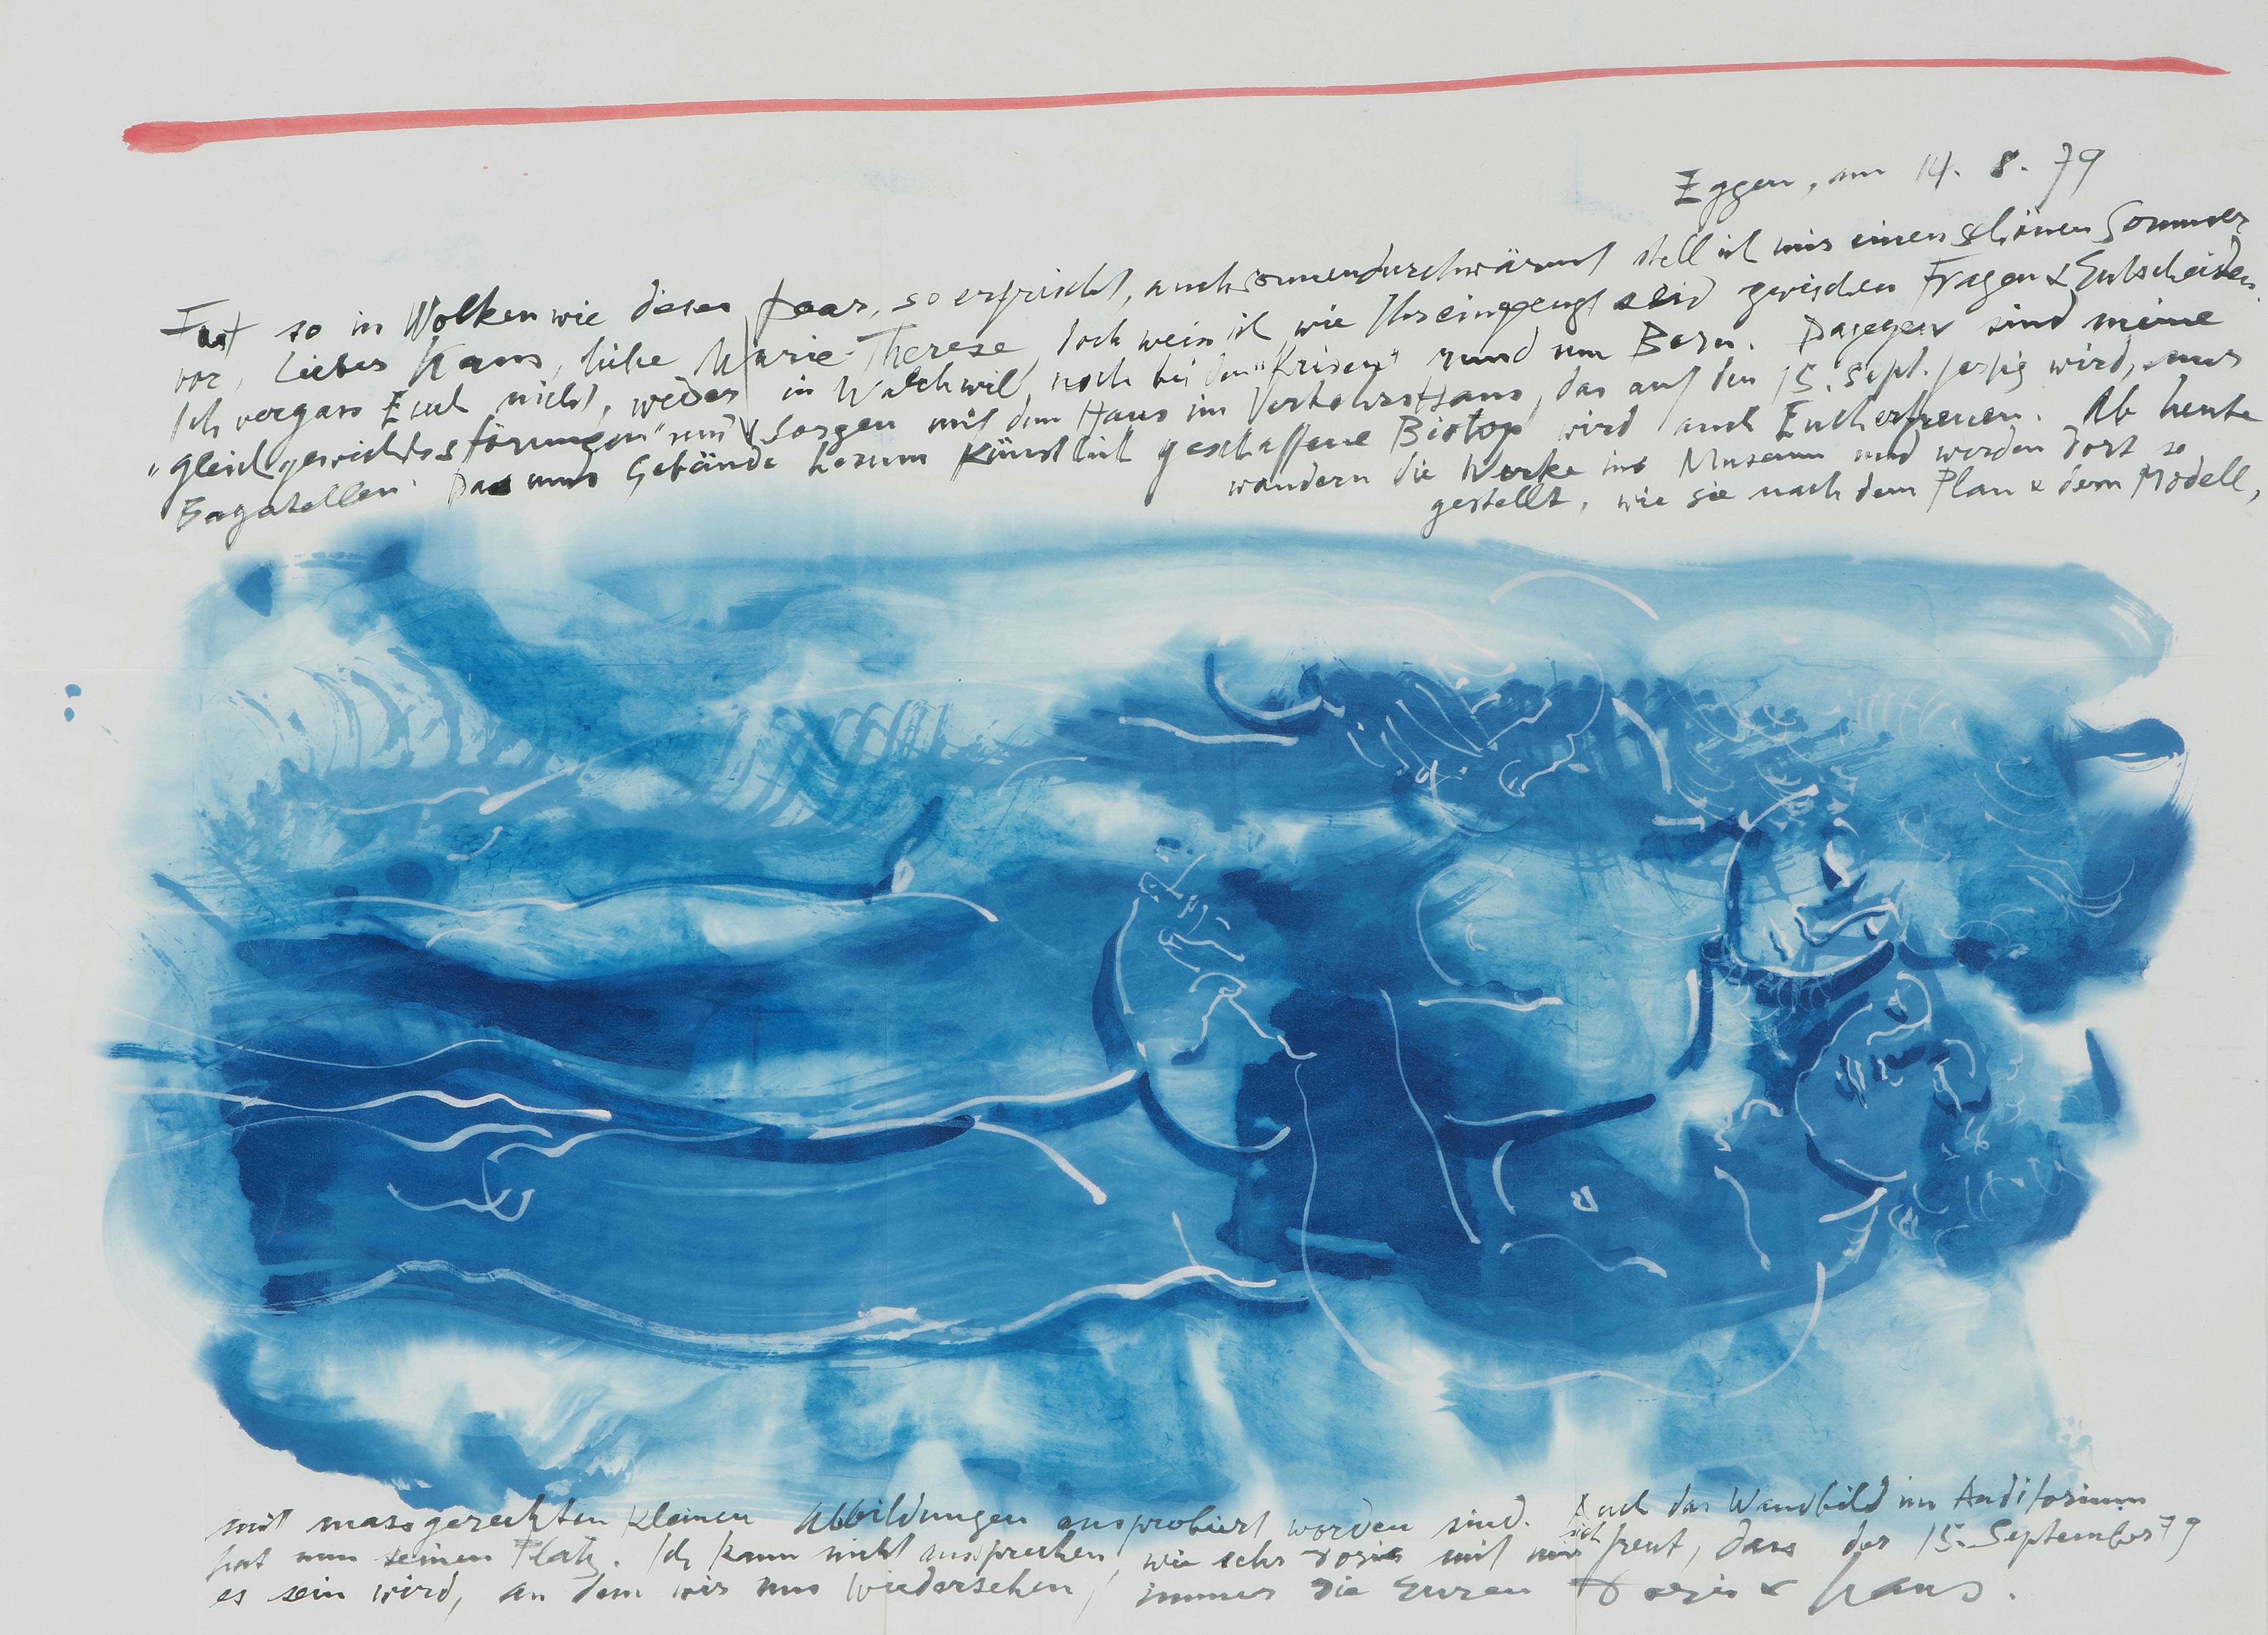 Eggen, am 14. 8. 79
Fast so in Wolken wie dieses Paar, so erfrischt, auch sonnendurchwärmt stell ich mir einen schönen Sommer
vor, lieber Hans, liebe Marie-Therese, doch weiss ich wie Ihr eingeengt seid zwischen Fragen & Entscheiden.
Ich vergass Euch nicht, weder in Walchwil, noch bei den "Krisen" rund um Bern. Dagegen sind meine
"Gleichgewichtsstörungen" und Sorgen mit dem Haus im Verkehrshaus, das auf den 15. Sept. fertig wird, nur
Bagatellen. Das ums Gebäude herum künstlich geschaffene Biotop wird auch Euch erfreuen. Ab heute
wandern die Werke ins Museum und werden dort so
gestellt, wie sie nach dem Plan & dem Modell,
mit massgerechten kleinen Abbildungen ausprobiert worden sind. Auch das Wandbild im Auditorium
hat nun seinen Platz. Ich kann nicht aussprechen, wie sehr Doris mit mir sich freut, dass der 15. September 79
es sein wird, an dem wir uns wiedersehen, immer die Euren Doris & Hans.